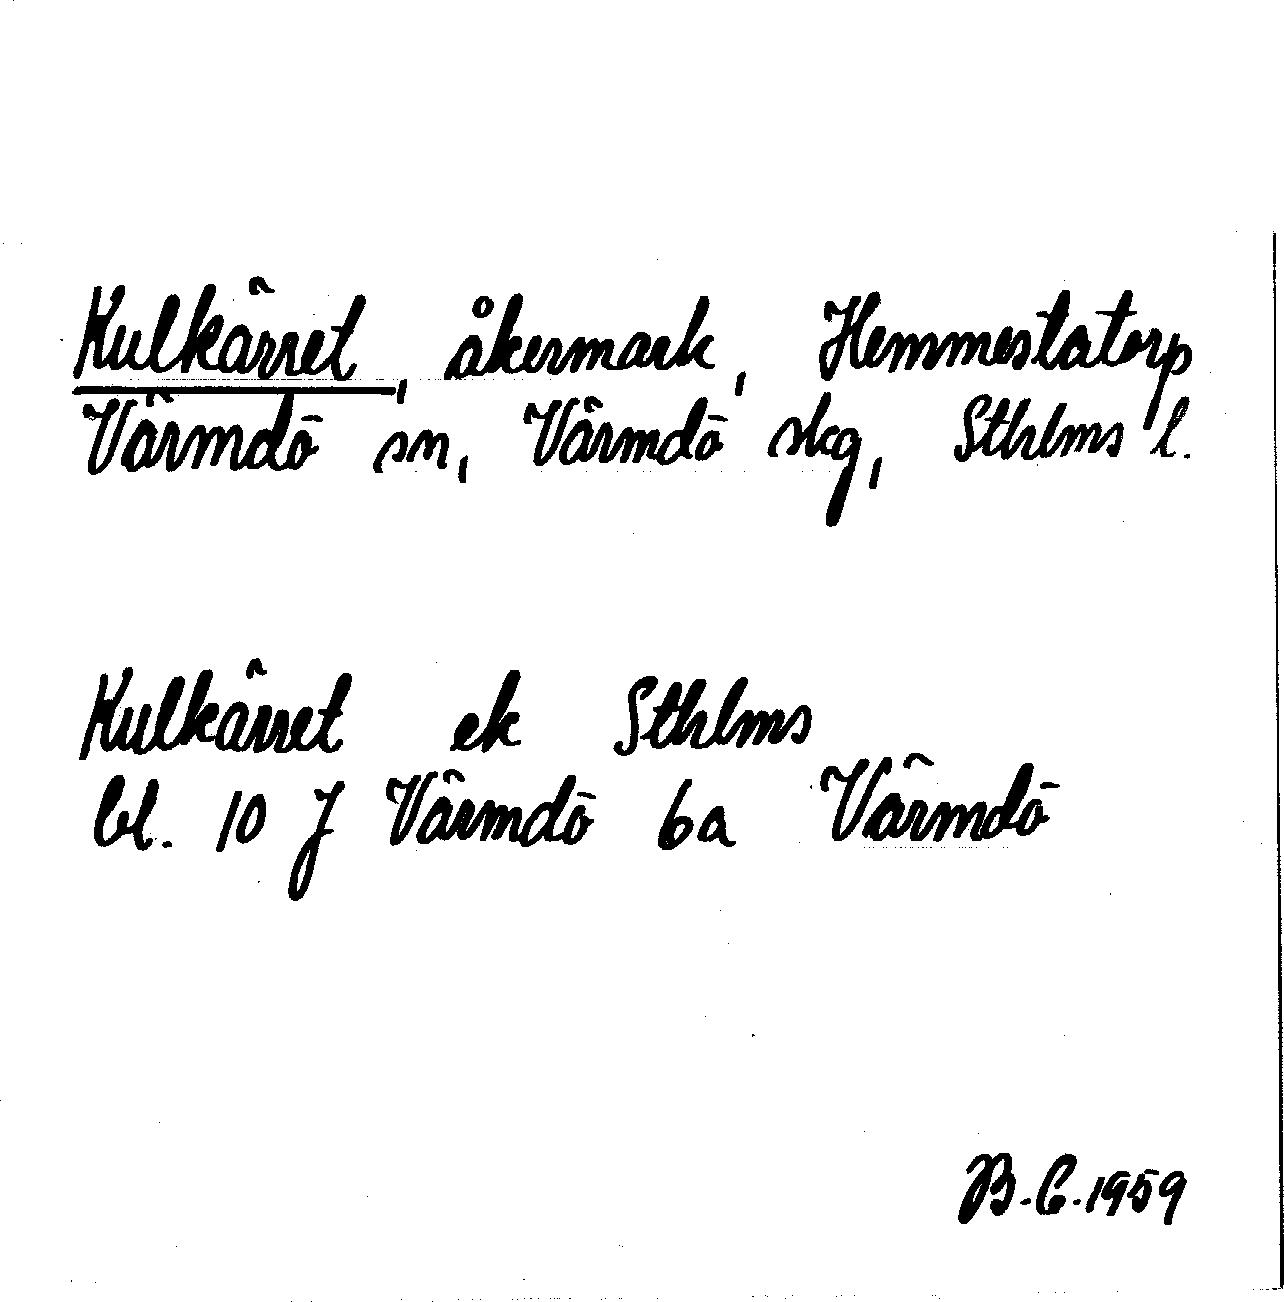 Kulkärret, åkermark, Hemmestatorp
Värmdö sn, Värmdö skg, Sthlms l.
Kulkärret ek Sthlms
bl. 10 J Värmdö 6a Värmdö
B.C.1959